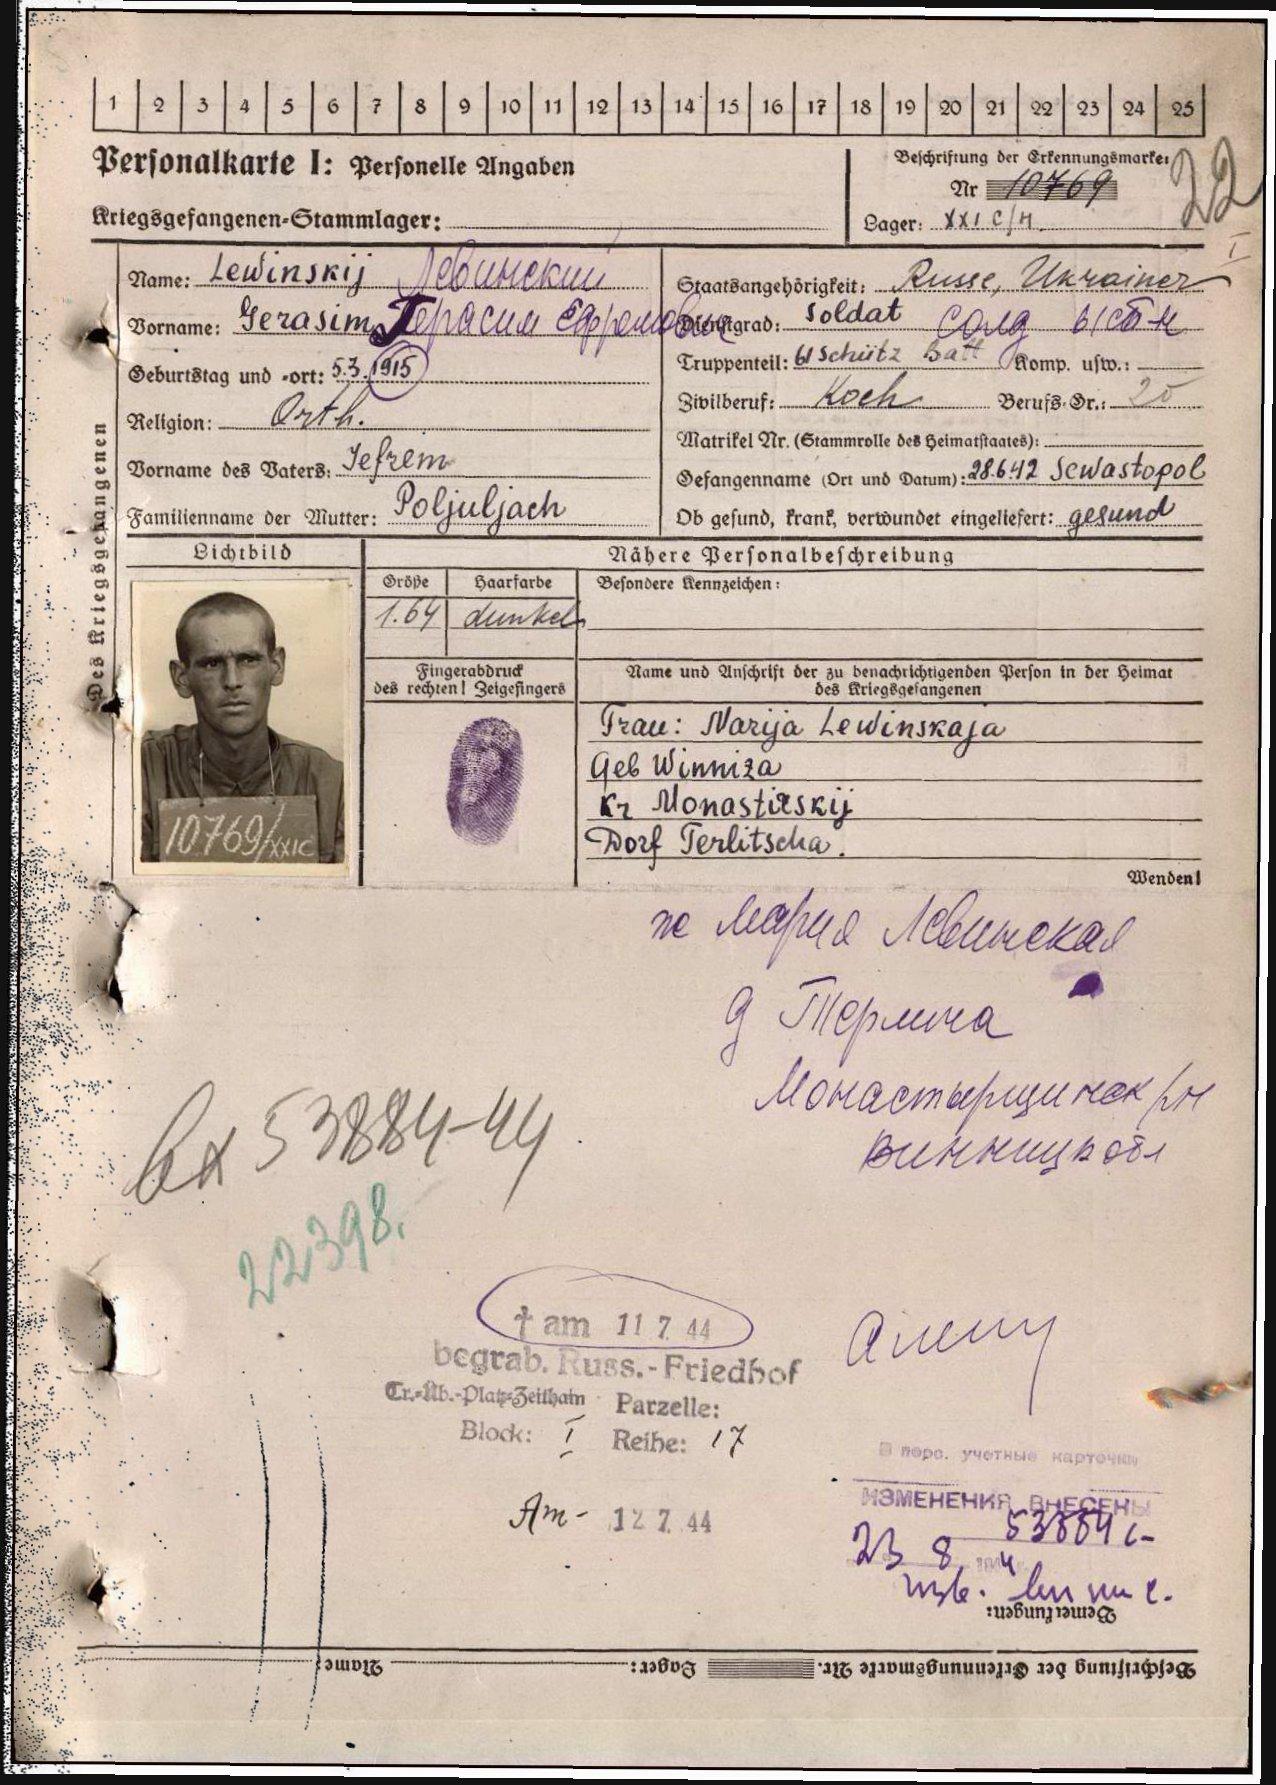 1 2 3 4 5 6 7 8 9 10 11 12 13 14 15 16 17 18 19 20 21 22 23 24 25
Personalkarte I: Personelle Angaben
Beschriftung der Erkennungsmarke:
Nr 10769
22
Kriegsgefangenen-Stammlager:
Lager: XXI C/H.
I
Des Kriegsgefangenen
Name: Lewinskij Левинский
Vorname: Gerasim Герасим Ефремович
Geburtstag und -ort: 5.3.1915
Religion: Orth.
Vorname des Vaters: Jefrem
Familienname der Mutter: Poljuljach
Staatsangehörigkeit: Russe, Ukrainer
Dienstgrad: Soldat солд
Truppenteil: 61 Schütz Batt Komp. usw.:
Zivilberuf: Koch Berufs-Gr.: 25
Matrikel Nr. (Stammrolle des Heimatstaates):
Gefangenname (Ort und Datum): 28.6.42 Sewastopol
Ob gesund, krank, verwundet eingeliefert: gesund
Lichtbild
Nähere Personalbeschreibung
Größe Haarfarbe Besondere Kennzeichen:
1.64 dunkel
Fingerabdruck
des rechten! Zeigefingers
Name und Anschrift der zu benachrichtigenden Person in der Heimat
des Kriegsgefangenen
Frau: Marija Lewinskaja
Geb Winniza
Kr Monastirskij
Dorf Terlitscha.
10769/XXIC
Wenden!
ж Мария Левинская
д Терлича
Монастырщинск р/н
Винницк обл
вх 53884-44
22398.
† am 11 7 44
begrab. Russ.-Friedhof
Tr.-Üb.-Platz-Zeithain Parzelle:
Block: I Reihe: 17
Am - 12 7 44
В перс. учетные карточки
ИЗМЕНЕНИЯ ВНЕСЕНЫ
53884 с-
23 8 4
Bemerkungen:
Beschriftung der Erkennungsmarke Nr. Lager: Name: